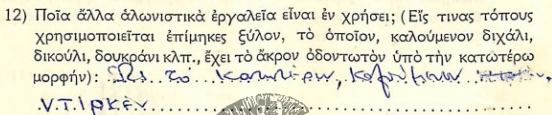 12) Ποῖα ἄλλα ἁλωνιστικὰ ἐργαλεῖα εἶναι ἐν χρήσει; (Εἴς τινας τόπους
χρησιμοποιεῖται ἐπίμηκες ξύλον, τὸ ὁποῖον, καλούμενον διχάλι,
δικούλι, δουκράνι κλπ., ἔχει τὸ ἄκρον ὀδοντωτὸν ὑπὸ τὴν κατωτέρω
μορφήν): Ὡς τὸ κατωτέρω, καλούμενον
ν.τ.ιρκέν